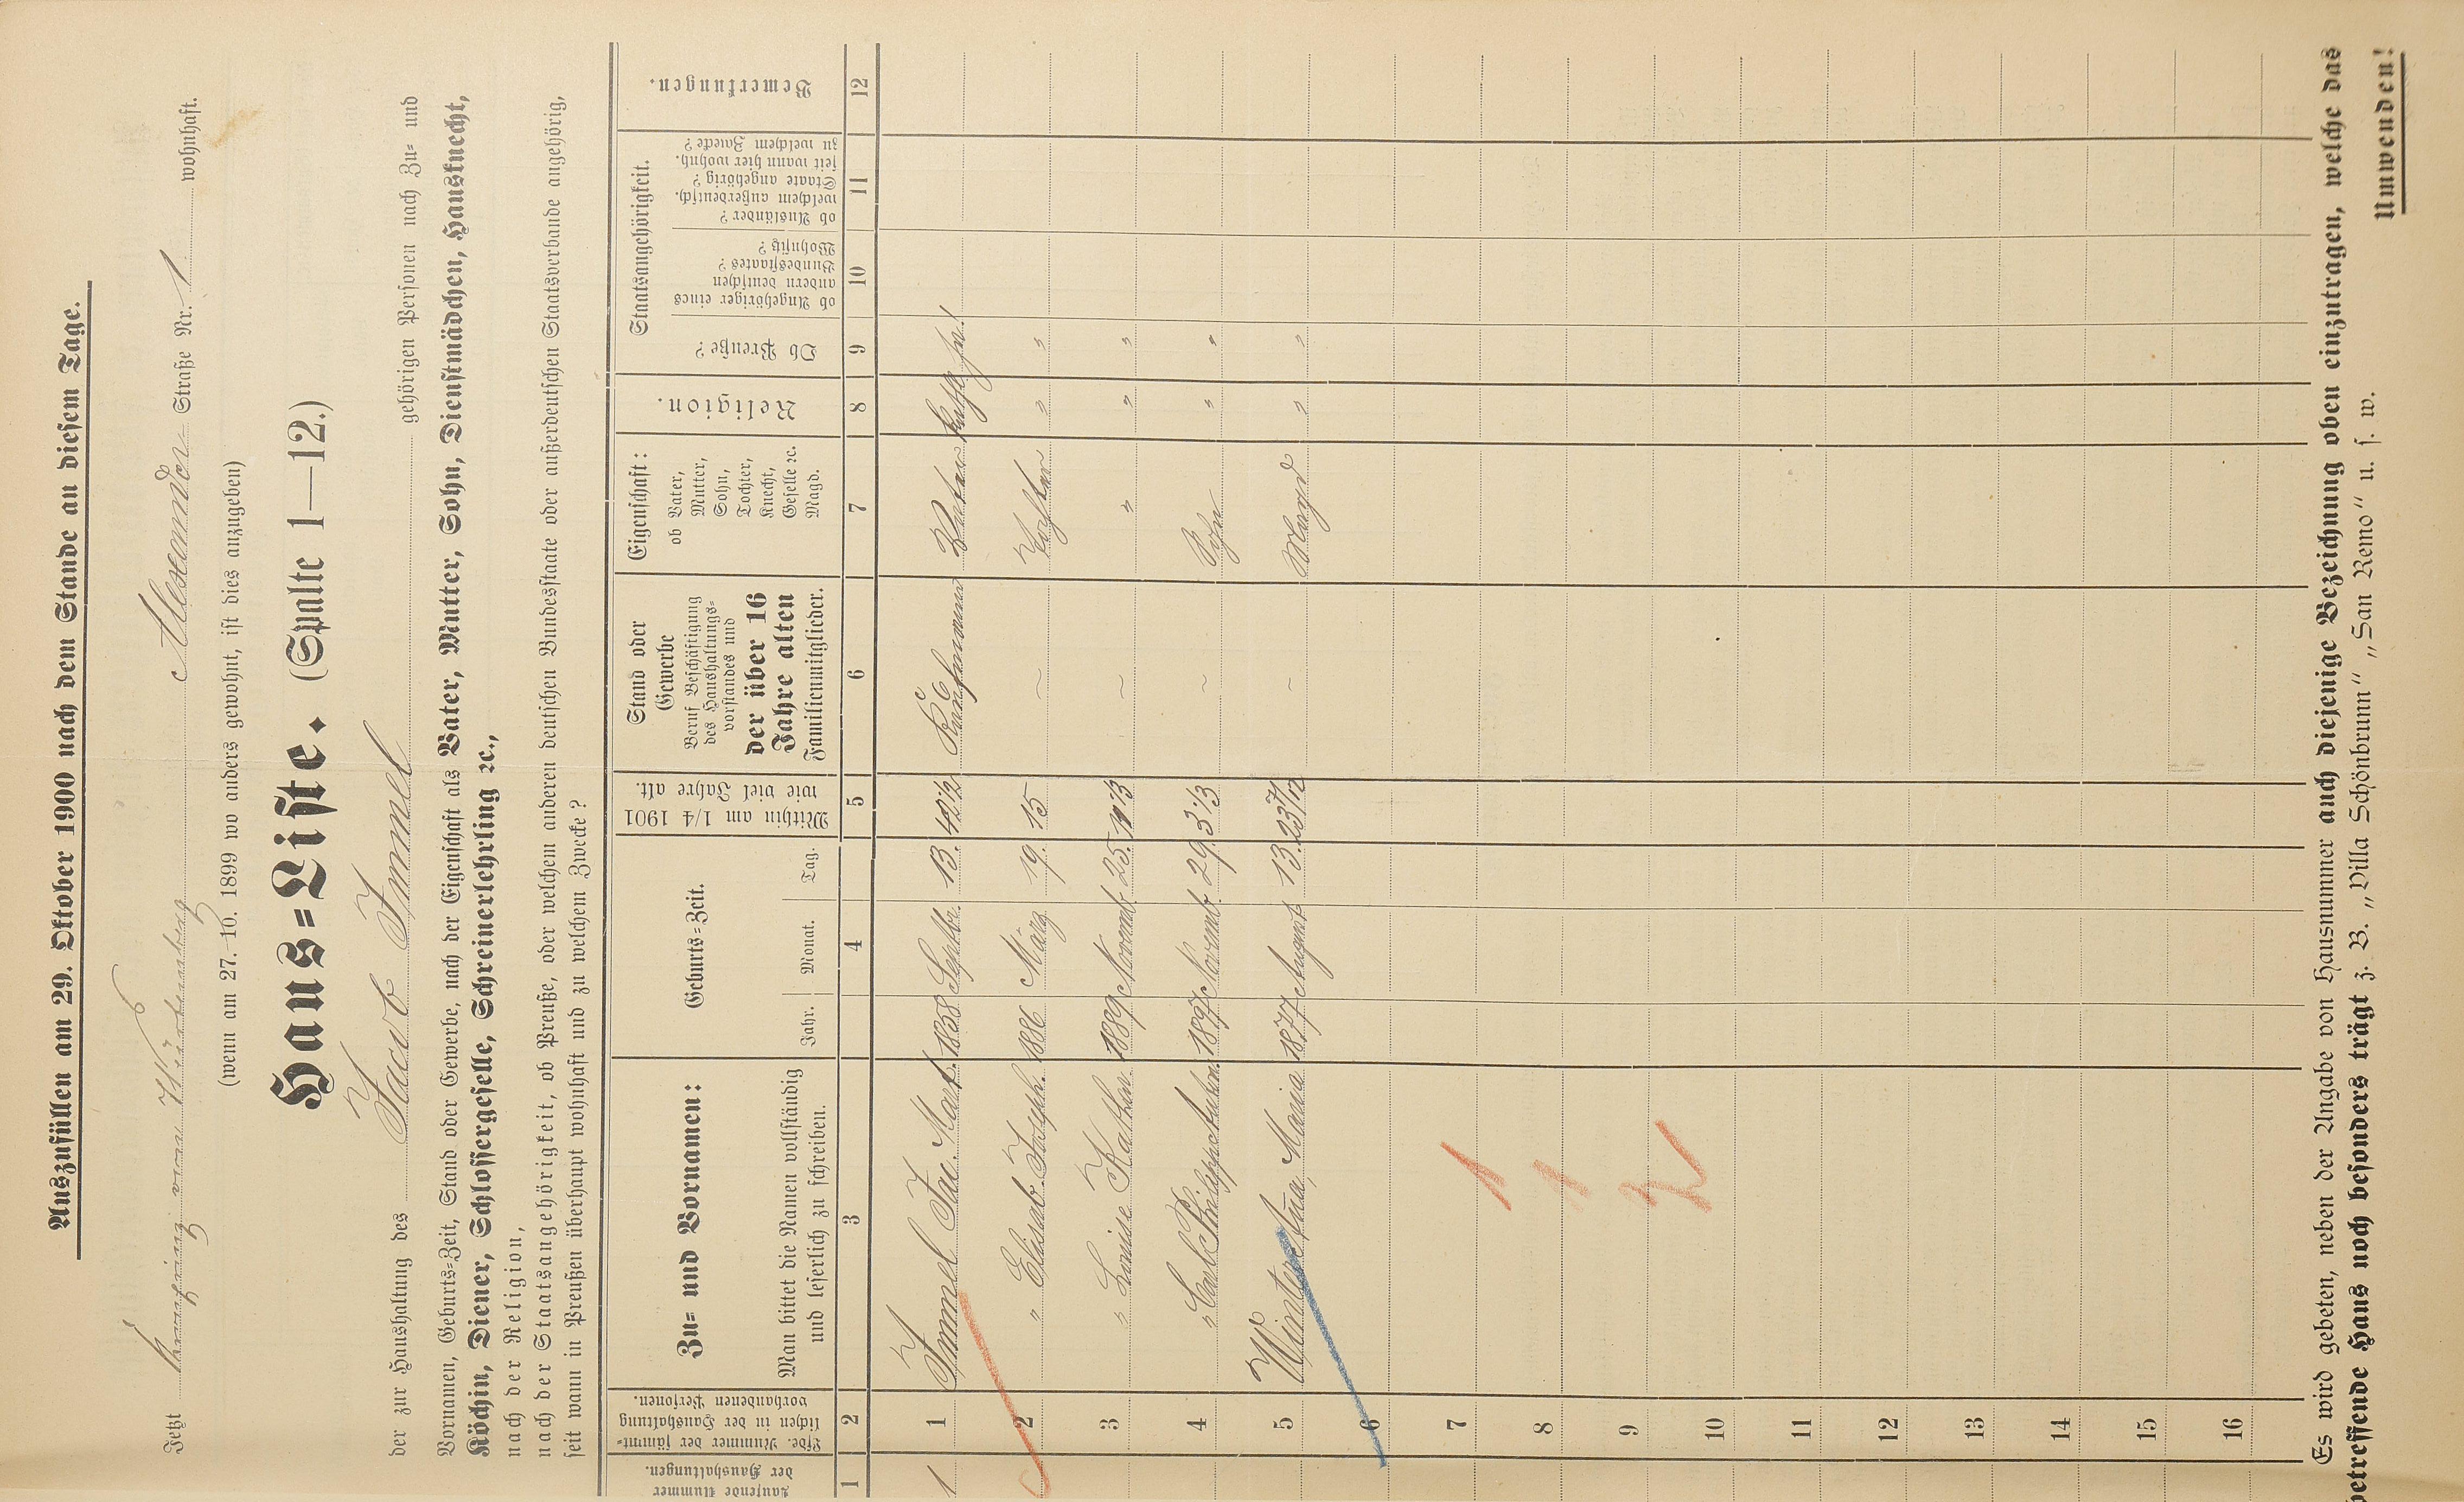 Auszufüllen am 29. Oktober 1900 nach dem Stande an diesem Tage.
Jetzt Alexander Straße Nr. 1 wohnhaft.
(wenn am 27. 10. 1899 wo anders gewohnt, ist dies anzugeben)
Haus=Liste. (Spalte 1—12.)
der zur Haushaltung des Jacob Immel gehörigen Personen nach Zu= und
Vornamen, Geburts=Zeit, Stand oder Gewerbe, nach der Eigenschaft als Vater, Mutter, Sohn, Dienstmädchen, Hausknecht,
Köchin, Diener, Schlossergeselle, Schreinerlehrling ꝛc.,
nach der Religion,
nach der Staatsangehörigkeit, ob Preuße, oder welchem anderen deutschen Bundesstaate oder außerdeutschen Staatsverbande angehörig,
seit wann in Preußen überhaupt wohnhaft und zu welchem Zwecke?
Laufende Nummer der Haushaltungen.
Lfde. Nummer der sämmt=lichen in der Haushaltung vorhandenen Personen.
Zu= und Vornamen:
Man bittet die Namen vollständig
und leserlich zu schreiben.
Geburts=Zeit.
Jahr. Monat. Tag.
Mithin am 1/4 1901
wie viel Jahre alt.
Stand oder
Gewerbe
Beruf Beschäftigung
des Haushaltungs=
vorstandes und
der über 16
Jahre alten
Familienmitglieder.
Eigenschaft:
ob Vater,
Mutter,
Sohn,
Tochter,
Knecht,
Geselle ꝛc.
Magd.
Religion.
Staatsangehörigkeit.
Ob Preuße?
ob Angehöriger eines
andern deutschen
Bundesstaates?
Wohnsitz?
ob Ausländer?
welchem außerdeutsch.
Staate angehörig?
seit wann hier wohnh.
zu welchem Zwecke?
Bemerkungen.
1 2 3 4 5 6 7 8 9 10 11 12
1 1 Immel Jac. 1858 Septbr. 13. 42½ Kaufmann Vater kath. ja!
2 " Elisab. Joseph. 1886 März 19. 15 ~ Tochter " "
3 " Louise Kathar. 1889 Novemb. 25. 11⅓ ~ " " "
4 " Carl Philipp Anton 1897 Novemb. 29. 3⅓ ~ Sohn " "
5 Winter Anna, Maria 1877 August 13. 23 7/12 ~ Magd " "
6
7
8
9
10
11
12
13
14
15
16
1
1
Es wird gebeten, neben der Angabe von Hausnummer auch diejenige Bezeichnung oben einzutragen, welche das
betreffende Haus noch besonders trägt z. B. „Villa Schönbrunn" „San Remo" u. s. w.
Umwenden!